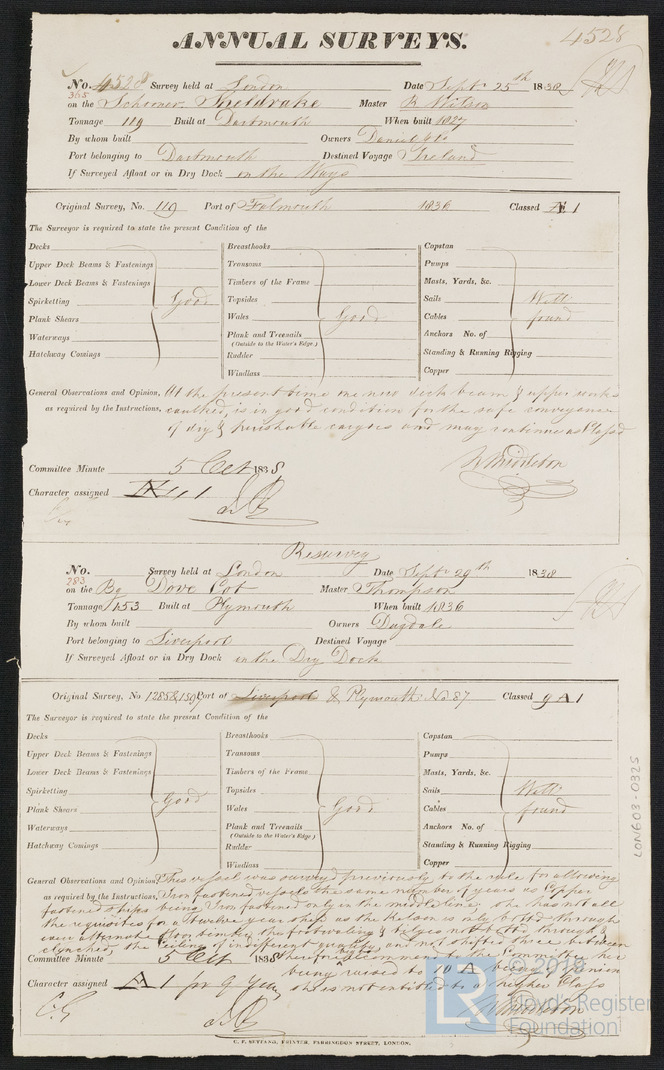 4528
ANNUAL SURVEYS.
No. 4528 Survey held at London Date Septr 25th 1838
365
on the Schooner Sheldrake Master R Wilson
Tonnage 119 Built at Dartmouth When built 1827
By whom built Owners Daniel &Co
Port belonging to Dartmouth Destined Voyage Ireland
If Surveyed Afloat or in Dry Dock on the Ways
Original Survey, No. 119 Port of Falmouth 1836 Classed Æ 1
The Surveyor is required to state the present Condition of the
Decks Breasthooks Capstan
Upper Deck Beams & Fastenings Transoms Pumps
Lower Deck Beams & Fastenings Timbers of the Frame Masts, Yards, &c.
Spirketting Good Topsides Sails Well
Plank Shears Wales Good Cables found
Waterways Plank and Treenails Anchors No. of
(Outside to the Water's Edge.)
Hatchway Comings Rudder Standing & Running Rigging
Windlass Copper
General Observations and Opinion, At the present time has new deck beams & upper works
as required by the Instructions, caulked, is in good condition for the safe conveyance
of dry & perishable cargoes and may continue as Classed
Committee Minute 5 Oct 1838 W Middleton
Character assigned Æ 1
Resurvey
No. Survey held at London Date Septr 29th 1838
283
on the Bg Dove Cot Master Thompson
Tonnage 153 Built at Plymouth When built 1836
By whom built Owners Dugdale
Port belonging to Liverpool Destined Voyage
If Surveyed Afloat or in Dry Dock in the Dry Dock
Original Survey, No 1285 & 1507 Port of Liverpool & Plymouth No 87 Classed 9 A 1
The Surveyor is required to state the present Condition of the
Decks Breasthooks Capstan
Upper Deck Beams & Fastenings Transoms Pumps
Lower Deck Beams & Fastenings Timbers of the Frame Masts, Yards, &c.
Spirketting Topsides Sails Well
Plank Shears Good Wales Good Cables found
Waterways Plank and Treenails Anchors No. of
(Outside to the Water's Edge.)
Hatchway Comings Rudder Standing & Running Rigging
Windlass Copper
General Observations and Opinion, This vessel was surveyed previously to the rule for allowing
as required by the Instructions, Iron fastened vessels the same number of years as Copper
fastened ships being Iron fastened only in the middle line, she has not all
the requisites for a Twelve year ship as the Kelson is only bolted through
every alternate floor timber, the footwaling & bilges not bolted through &
clenched, the Ceiling of indifferent quality, and not shifted three between
Committee Minute 5 Oct 1838 therefore recommend to the Committee her
being raised to 10 A being of opinion
Character assigned A 1 for 9 Years she is not entitled to a higher Class
W Middleton
LON603-0325
© 2018
LR
Lloyd's Register
Foundation
C. F. SEYFANG, PRINTER, FARRINGDON STREET, LONDON.